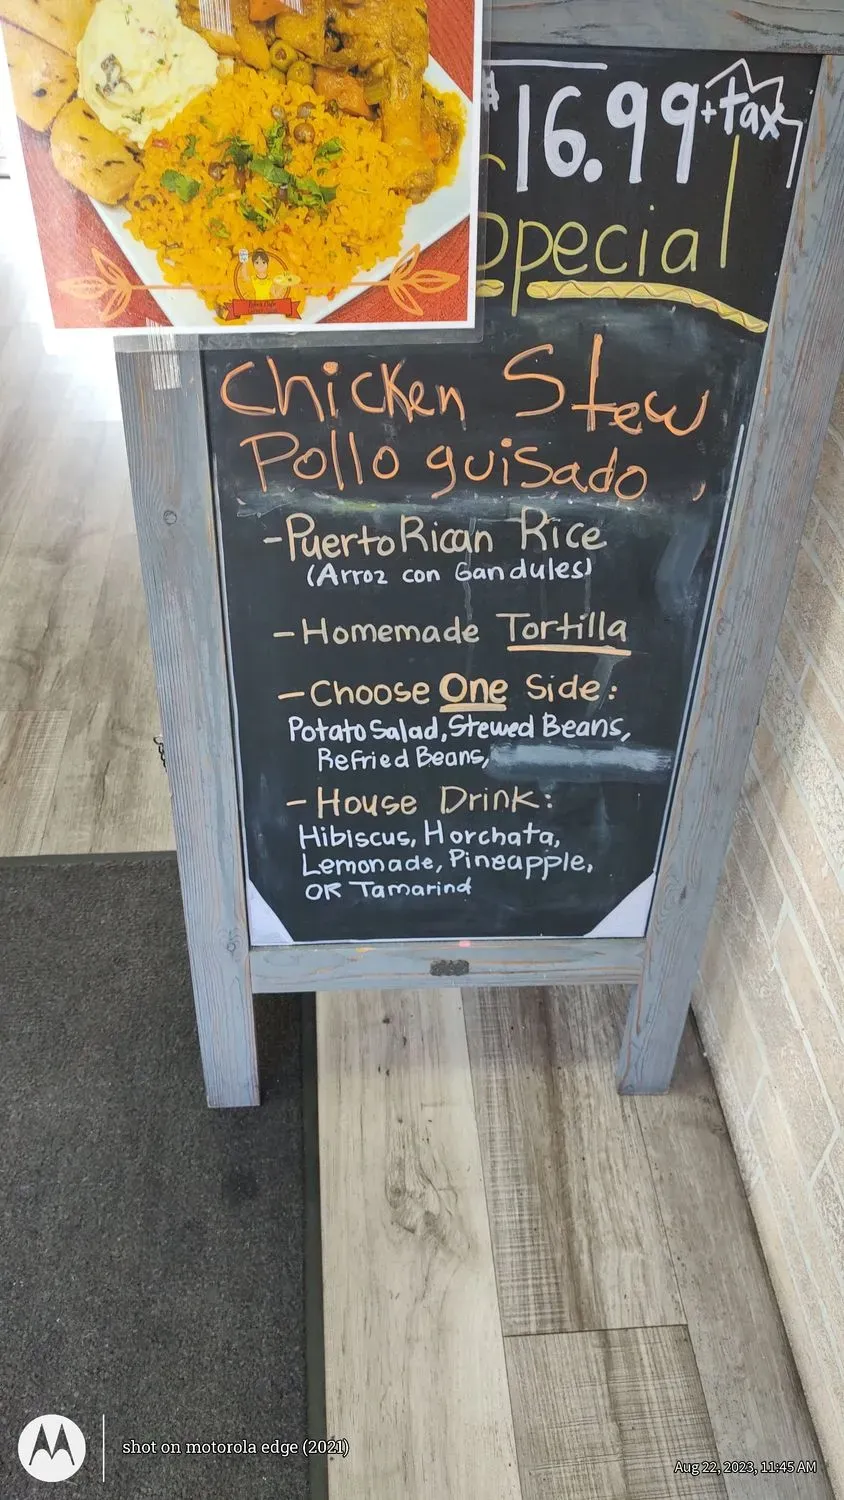 $16.99 + tax
Special
Chicken Stew
Pollo guisado
- Puerto Rican Rice
(Arroz con Gandules)
- Homemade Tortilla
- Choose One Side:
Potato Salad, Stewed Beans,
Refried Beans,
- House Drink:
Hibiscus, Horchata,
Lemonade, Pineapple,
OR Tamarind
shot on motorola edge (2021)
Aug 22, 2023, 11:45 AM